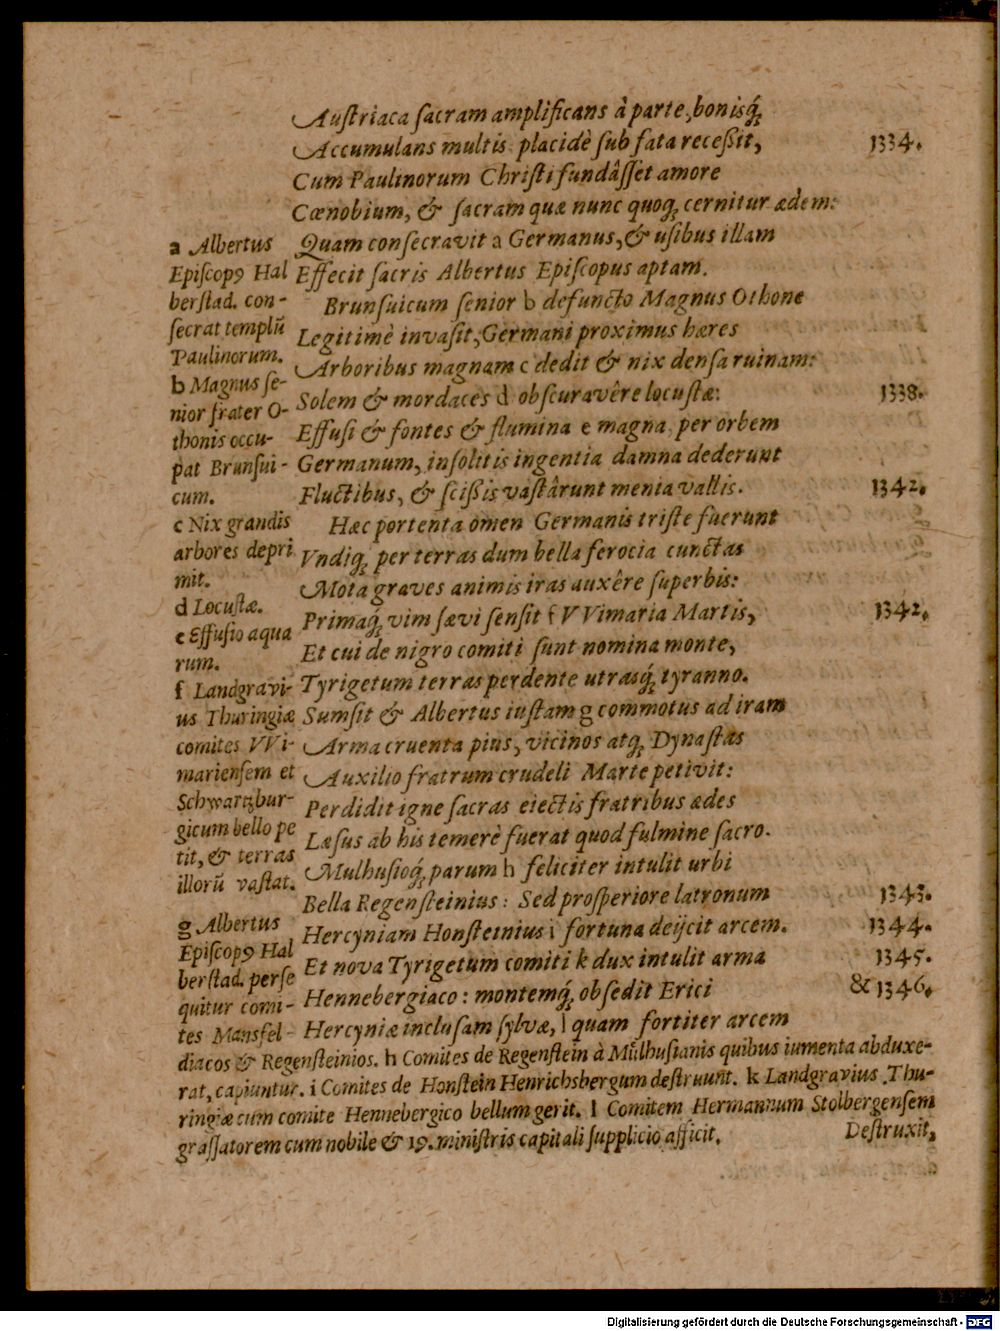 Auſtriaca ſacram amplificans à parte, bonisq́;
Accumulans multis placidè ſub fata receßit,
1334.
Cum Paulinorum Chriſti fundâſſet amore
Cœnobium, & ſacram quæ nunc quoq; cernitur ædem:
Quam conſecravit a Germanus, & uſibus illam
Effecit ſacris Albertus Epiſcopus aptam.
Brunſuicum ſenior b defuncto Magnus Othone
Legitimè invaſit, Germani proximus hæres
Arboribus magnam c dedit & nix denſa ruinam:
Solem & mordaces d obſcuravêre locuſtæ:
1338.
Effuſi & fontes & flumina e magna per orbem
Germanum, inſolitis ingentia damna dederunt
Fluctibus, & ſcißis vaſtârunt menia vallis.
1342.
Hæc portenta omen Germanis triſte fuerunt
Vndiq; per terras dum bella ferocia cunctas
Mota graves animis iras auxêre ſuperbis:
Primaq́; vim ſævi ſenſit f VVimaria Martis,
1342.
Et cui de nigro comiti ſunt nomina monte,
Tyrigetum terras perdente utrasq́; tyranno.
Sumſit & Albertus iuſtam g commotus ad iram
Arma cruenta pius, vicinos atq; Dynaſtas
Auxilio fratrum crudeli Marte petivit:
Perdidit igne ſacras eiectis fratribus ædes
Læſus ab his temerè fuerat quod fulmine ſacro.
Mulhuſioq́; parum h feliciter intulit urbi
Bella Regenſteinius: Sed proſperiore latronum
1343.
Hercyniam Honſteinius i fortuna deijcit arcem.
1344.
Et nova Tyrigetum comiti k dux intulit arma
1345.
Hennebergiaco: montemq́; obſedit Erici
& 1346.
Hercyniæ incluſam ſylvæ, l quam fortiter arcem
a Albertus
Epiſcopꝰ Hal
berſtad. con-
ſecrat templũ
Paulinorum.
b Magnus ſe-
nior frater O-
thonis occu-
pat Brunſui-
cum.
c Nix grandis
arbores depri
mit.
d Locuſtæ.
e Effuſio aqua
rum.
f Landgravi-
us Thuringiæ
comites VVi-
marienſem et
Schwartzbur-
gicum bello pe
tit, & terras
illorũ vaſtat.
g Albertus
Epiſcopꝰ Hal
berſtad. perſe
quitur comi-
tes Mansfel-
diacos & Regenſteinios. h Comites de Regenſtein à Mülhuſianis quibus iumenta abduxe-
rat, capiuntur. i Comites de Honſtein Henrichsbergum deſtruunt. k Landgravius Thu-
ringiæ cum comite Hennebergico bellum gerit. l Comitem Hermannum Stolbergenſem
graſſatorem cum nobile & 19. miniſtris capitali ſupplicio afficit.
Deſtruxit,
Digitalisierung gefördert durch die Deutsche Forschungsgemeinschaft - DFG